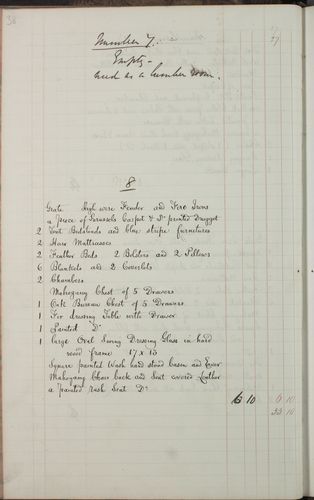 38
Number 7.
Empty -
used as a lumber room.
8
Grate High wire Fender and Fire Irons
a piece of Brussels Carpet & Do printed Drugget
2 Tent Bedsteads and blue stripe furnitures
2 Hair Mattrasses
2 Feather Beds 2 Bolsters and 2 Pillows
6 Blankets and 2 Coverlets
2 Chambers
Mahogany Chest of 5 Drawers
1 Oak Bureau Chest of 5 Drawers
1 Fir dressing Table with Drawer
1 Painted Do
1 large Oval Swing Dressing Glass in hard
wood frame 17 x 13
Square painted Wash hand stand bason and Ewer
Mahogany Chair back and Seat covered Leather
a painted rush Seat Do
6 10 6 10
33 10